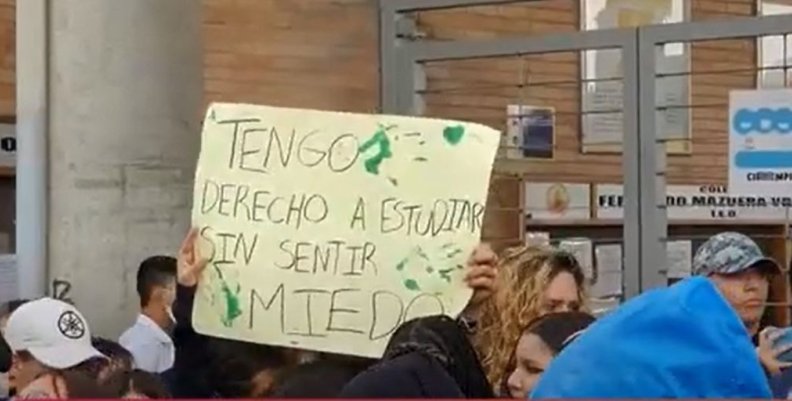 TENGO
DERECHO A ESTUDIAR
SIN SENTIR
MIEDO
COLE
MAZUERA
I.E.D.